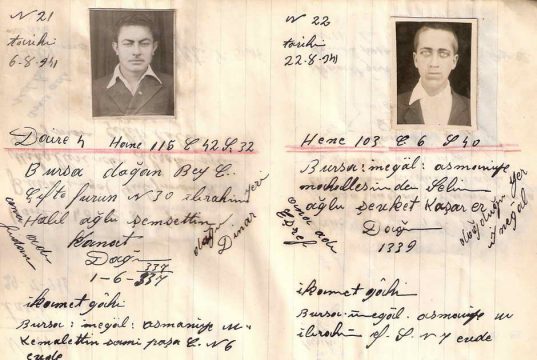 N 21
tarihi
6-8-941
Daire 4 Hane 115 C 42 S 32
Bursa doğan Bey C.
Çifte furun N 30 ibrahim
Halil oğlu şemsettin
Kanat
Doğ 337
1-6-337
ana adı
doğduğu yeri
Dinar
ikamet gâhi
Bursa: inegöl: osmaniye m
Kemalettin sami paşa C. N 6
evde
N 22
tarihi
22-8-941
Hene 103 C 6 S 40
Bursa: inegöl: osmaniye
mahallesinden Selim
oğlu şevket Kaşar er
Doğ
1339
ana adı
Eşref
doğduğu yer
inegöl
ikamet gâhi
Bursa-inegöl. osmaniye m
ibrahim S. N 7 evde